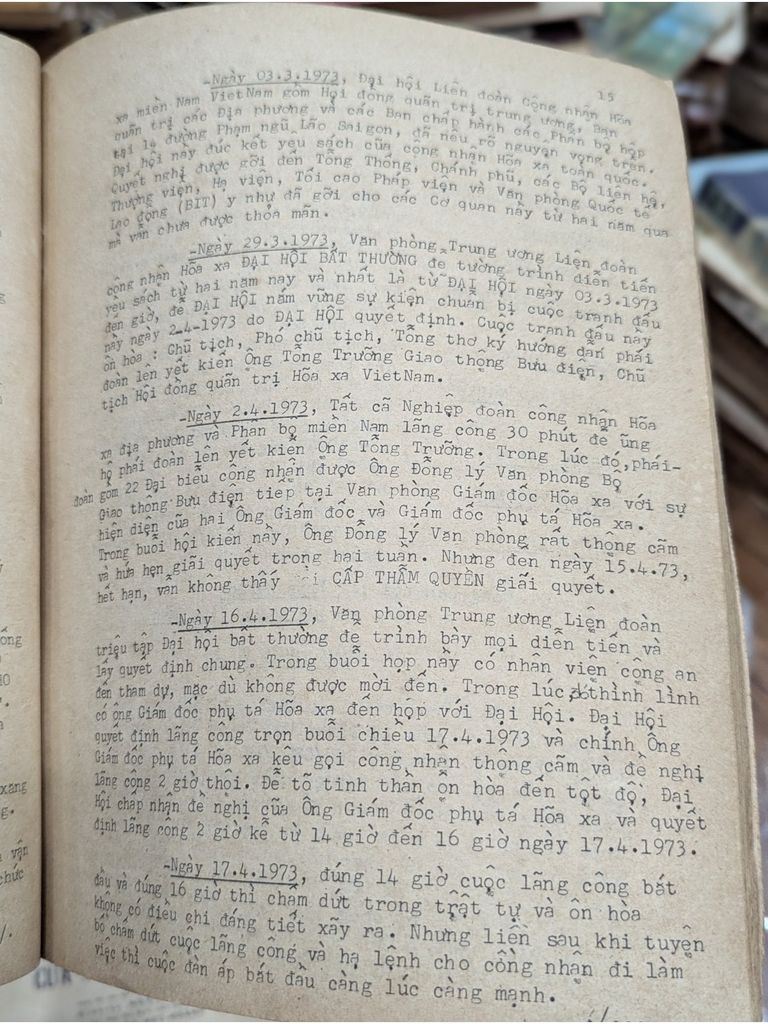 15
-Ngày 03.3.1973, Đại hội Liên đoàn Công nhân Hõa
xa miền Nam VietNam gồm Hội đồng quãn trị trung ương, Ban
quãn trị các Địa phương và các Ban chấp hành các Phân bộ họp
tại lộ đường Phạm ngũ Lão Saigon, đã nêu rõ nguyện vọng trên.
Đại hội này đúc kết yêu sách của công nhân Hõa xa toàn quốc.
Quyết nghị được gỡi đến Tổng Thống, Chánh phủ, các Bộ liên hệ,
Thượng viện, Hạ viện, Tối cao Pháp viện và Văn phòng Quốc tế
Lao động (BIT) y như đã gỡi cho các Cơ quan này từ hai năm qua
mà vẫn chưa được thỏa mãn.
-Ngày 29.3.1973, Văn phòng Trung ương Liên đoàn
công nhân Hõa xa ĐẠI HỘI BẤT THƯỜNG để tường trình diễn tiến
yêu sách từ hai năm nay và nhất là từ ĐẠI HỘI ngày 03.3.1973
đến giờ, để ĐẠI HỘI nắm vững sự kiện chuẩn bị cuộc tranh đấu
này ngày 2-4-1973 do ĐẠI HỘI quyết định. Cuộc tranh đấu này
ôn hòa : Chũ tịch, Phó chũ tịch, Tổng thơ ký hướng dẫn phái
đoàn lên yết kiến Ông Tổng Trưởng Giao thông Bưu điện, Chũ
tịch Hội đồng quãn trị Hõa xa VietNam.
-Ngày 2.4.1973, Tất cã Nghiệp đoàn công nhân Hõa
xa địa phương và Phân bộ miền Nam lãng công 30 phút để ũng
hộ phái đoàn lên yết kiến Ông Tổng Trưỡng. Trong lúc đó,phái-
đoàn gồm 22 Đại biểu công nhân được Ông Đổng lý Văn phòng Bộ
Giao thông Bưu điện tiếp tại Văn phòng Giám đốc Hõa xa với sự
hiện diện của hai Ông Giám đốc và Giám đốc phụ tá Hõa xa.
Trong buổi hội kiến này, Ông Đổng lý Văn phòng rất thông cãm
và hứa hẹn giãi quyết trong hai tuần. Nhưng đến ngày 15.4.73,
hết hạn, vẫn không thấy CẤP THẨM QUYỀN giãi quyết.
-Ngày 16.4.1973, Văn phòng Trung ương Liên đoàn
triệu tập Đại hội bất thường để trình bày mọi diễn tiến và
lấy quyết định chung. Trong buổi họp này có nhân viên công an
đến tham dự, mặc dù không được mời đến. Trong lúc đó, thình lình
có ông Giám đốc phụ tá Hõa xa đến họp với Đại Hội. Đại Hội
quyết định lãng công trọn buổi chiều 17.4.1973 và chính Ông
Giám đốc phụ tá Hõa xa kêu gọi công nhân thông cãm và đề nghị
lãng công 2 giờ thôi. Để tõ tinh thần ôn hòa đến tột độ, Đại
Hội chấp nhận đề nghị cũa Ông Giám đốc phụ tá Hõa xa và quyết
định lãng công 2 giờ kể từ 14 giờ đến 16 giờ ngày 17.4.1973.
-Ngày 17.4.1973, đúng 14 giờ cuộc lãng công bắt
đầu và đúng 16 giờ thì chấm dứt trong trật tự và ôn hòa
không có điều chi đáng tiết xãy ra. Nhưng liền sau khi tuyên
bố chấm dứt cuộc lãng công và hạ lệnh cho công nhân đi làm
việc thì cuộc đàn áp bắt đầu càng lúc càng mạnh.